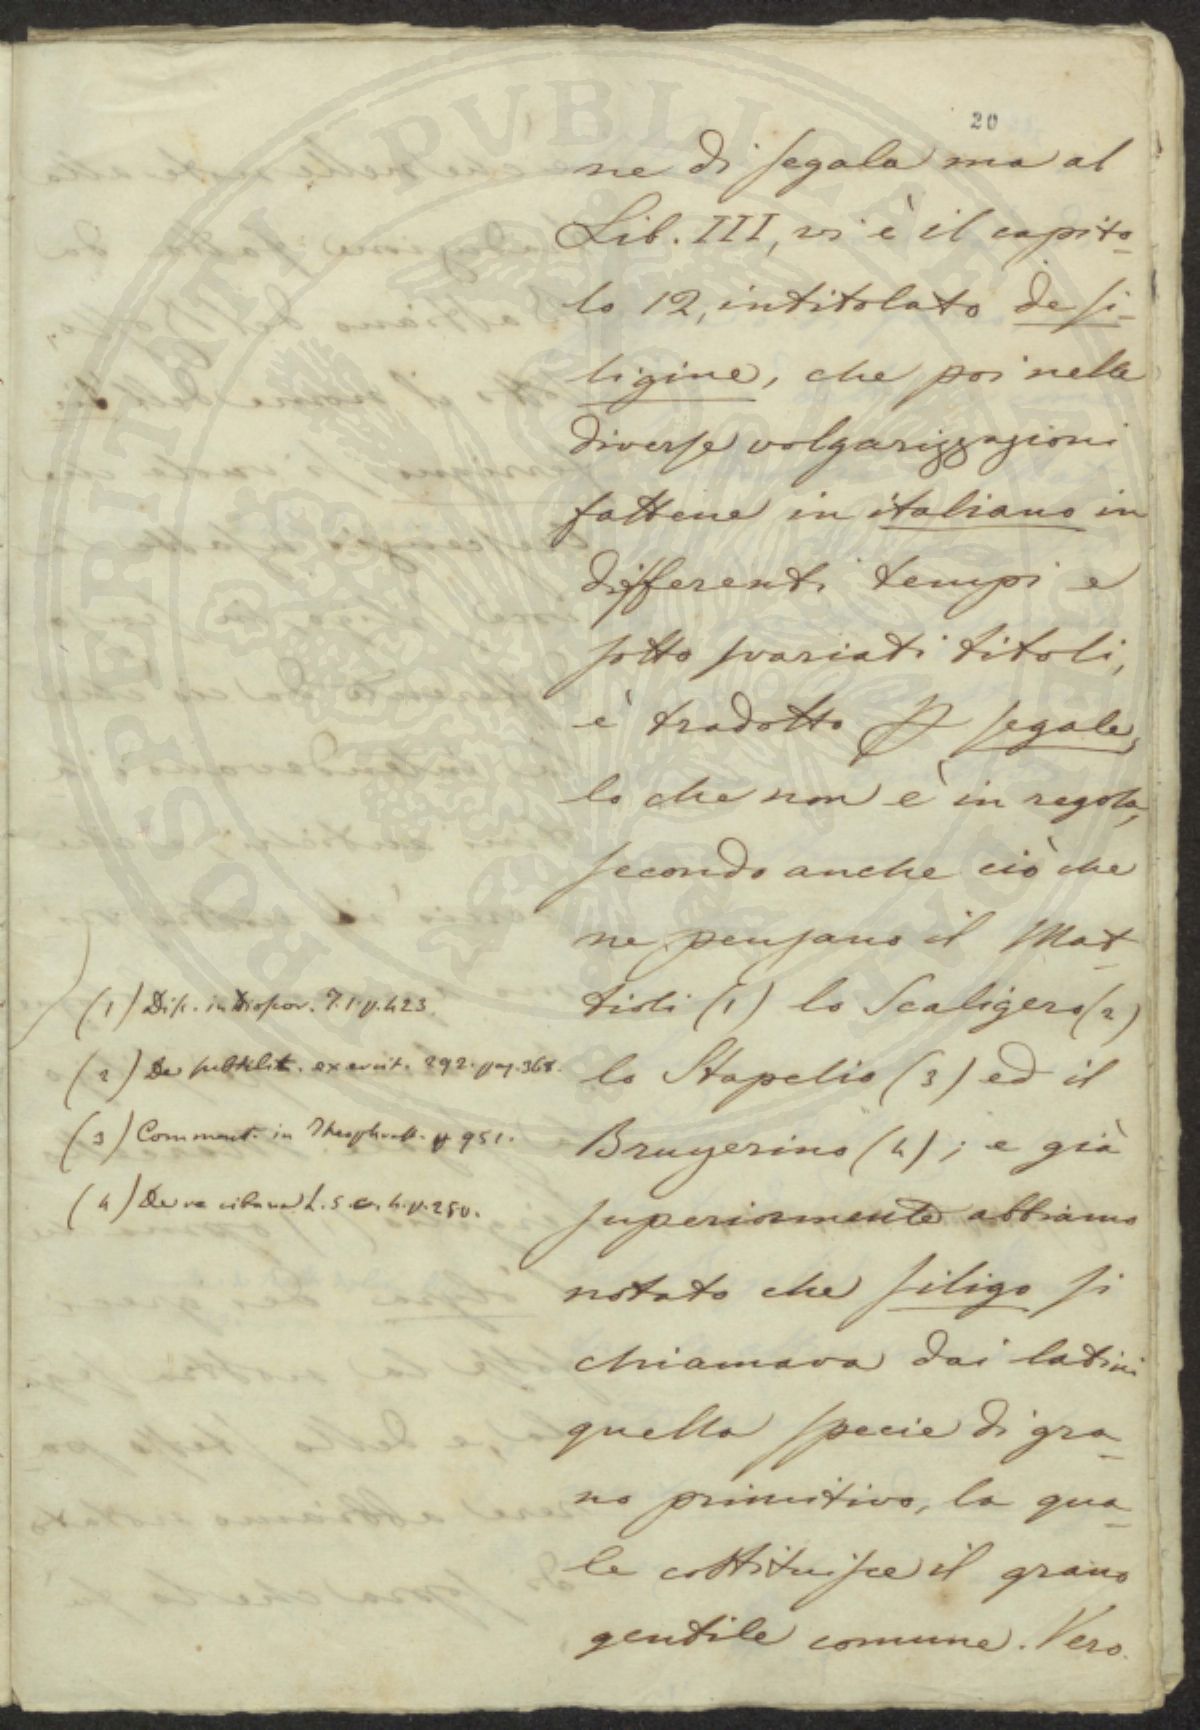 20
ne di segala ma al
Lib. III, vi è il capito-
lo 12, intitolato de si-
ligine, che poi nelle
diverse volgarizzazioni
fattene in italiano in
differenti tempi e
sotto svariati titoli,
è tradotto p segale,
lo che non è in regola,
secondo anche ciò che
ne pensano il Mat-
tioli (1) lo Scaligero (2)
lo Stapelio (3) ed il
Bruyerino (4); e già
superiormente abbiamo
notato che siligo si
chiamava dai latini
quella specie di gra-
no primitivo, la qua-
le costituisce il grano
gentile comune. Vero
(1) Dis. in Dioscor. T. 1. p. 423.
(2) De subtilit. exercit. 292. pag. 368.
(3) Comment. in Theophrast. p 951.
(4) De re cibaria L. 5. c. 4. p. 250.
PROSPERITATI PUBLICAE